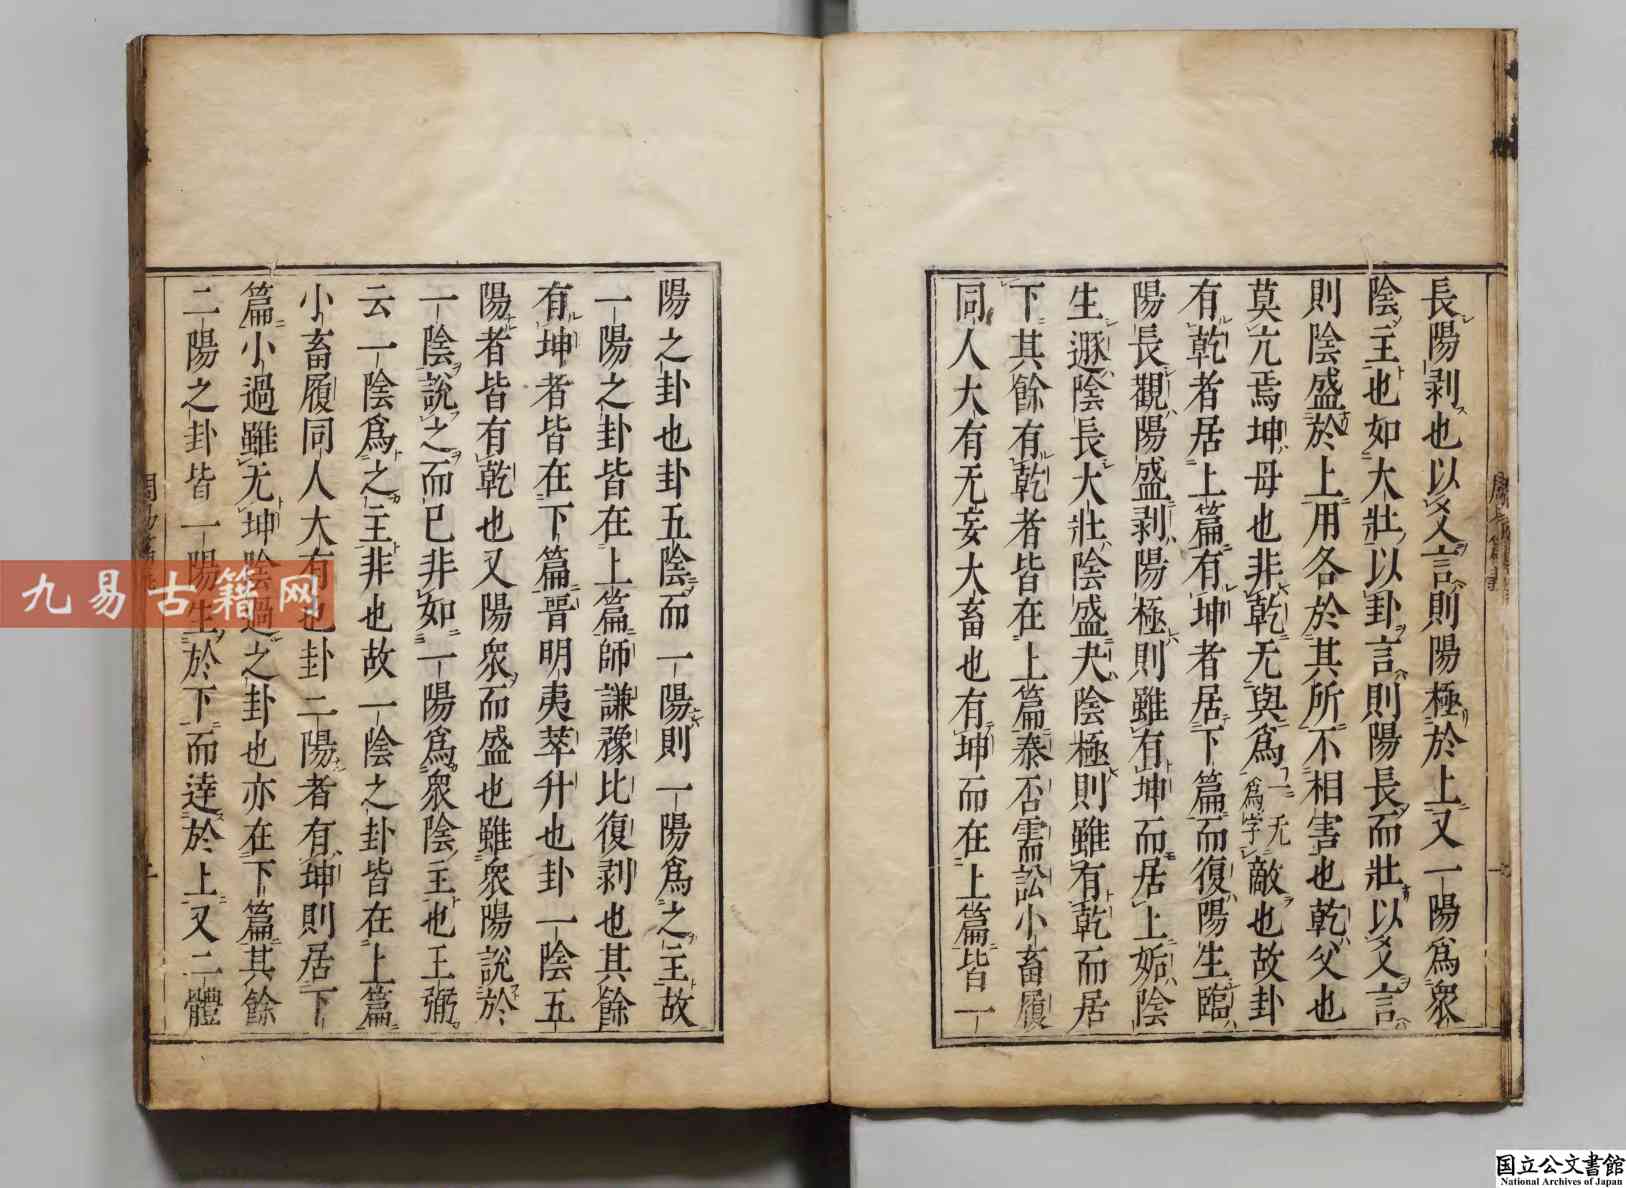 長陽剥也以爻言則陽極於上又一陽爲衆
陰主也如大壯以卦言則陽長而壯以爻言
則陰盛於上用各於其所不相害也乾父也
莫亢焉坤母也非乾无與爲一无爲字敵也故卦
有乾者居上篇有坤者居下篇而復陽生臨
陽長觀陽盛剥陽極則雖有坤而居上姤陰
生遯陰長大壯陰盛夬陰極則雖有乾而居
下其餘有乾者皆在上篇泰否需訟小畜履
同人大有无妄大畜也有坤而在上篇皆一
陽之卦也卦五陰而一陽則一陽爲之主故
一陽之卦皆在上篇師謙豫比復剥也其餘
有坤者皆在下篇晋明夷萃升也卦一陰五
陽者皆有乾也又陽衆而盛也雖衆陽說於
一陰說之而已非如一陽爲衆陰主也王弼
云一陰爲之主非也故一陰之卦皆在上篇
小畜履同人大有也卦二陽者有坤則居下
篇小過雖无坤陰過之卦也亦在下篇其餘
二陽之卦皆一陽生於下而達於上又二體
九易古籍网
国立公文書館
National Archives of Japan